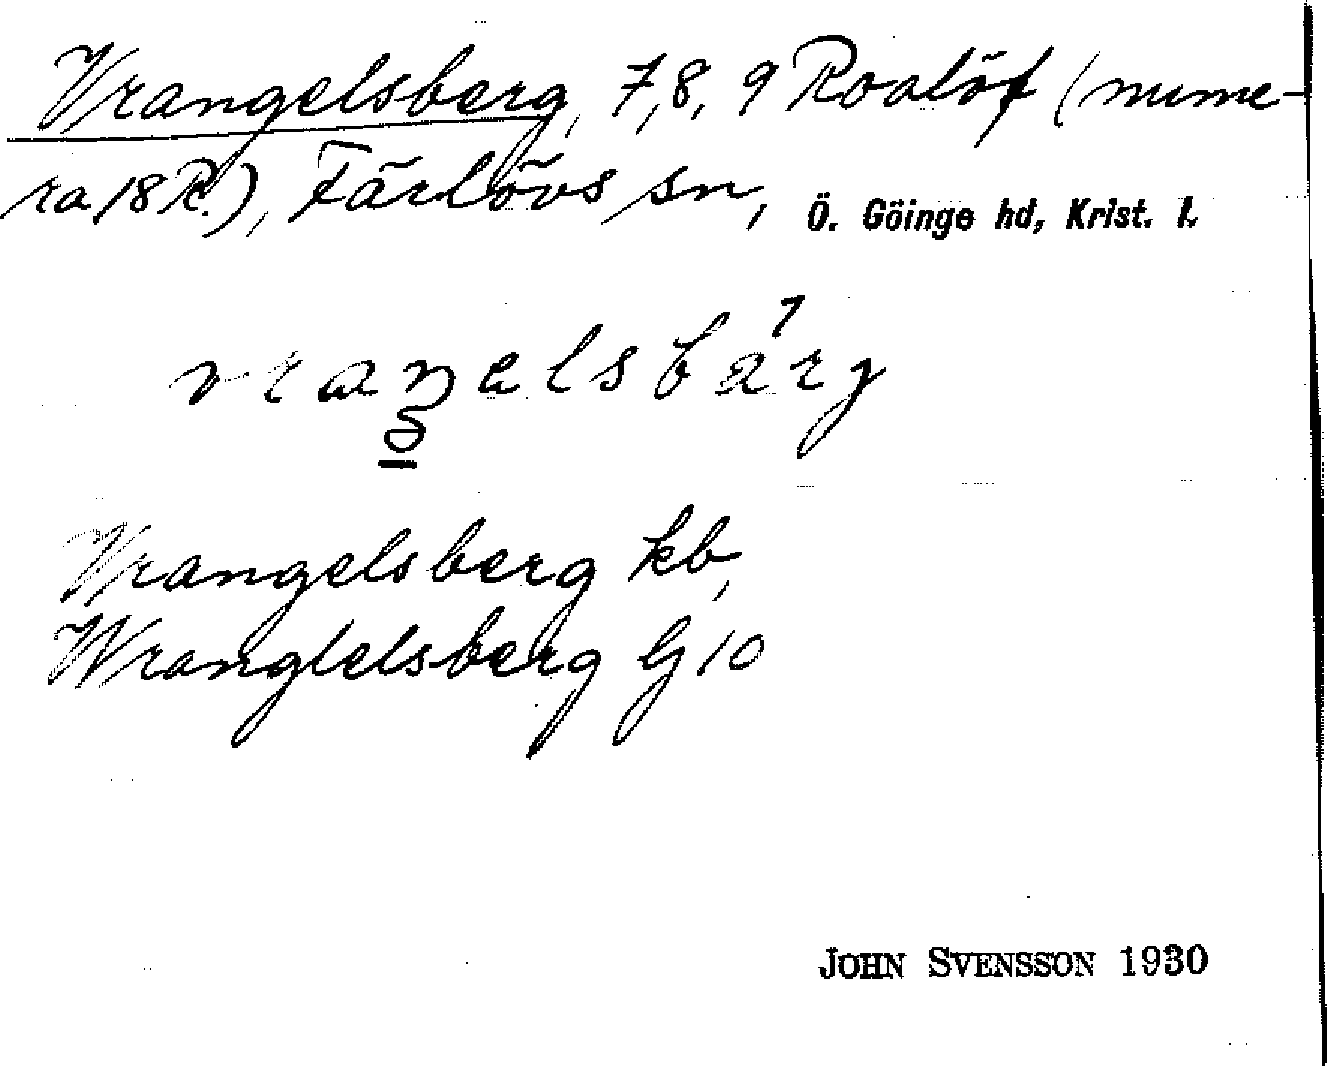 Vrangelsberg, 7,8, 9 Roalöf (nume-
ra 18 R.), Färlövs sn, Ö. Göinge hd, Krist. l.
Vrangelsberg kb,
Wranglelsberg G 10
JOHN SVENSSON 1930